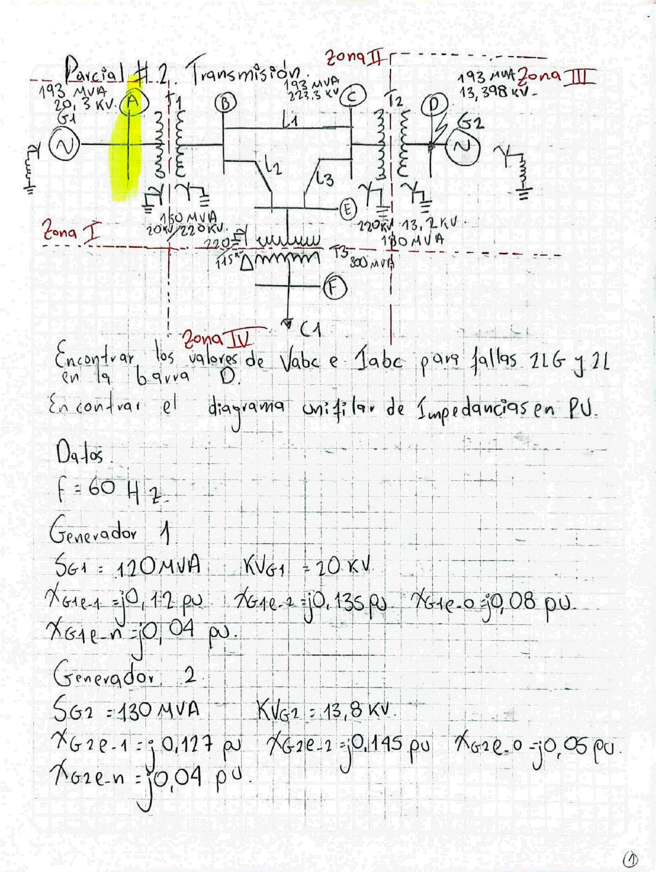 Zona II
Parcial #.2 Transmisión.
193 MVA
20,3 KV.
193 MVA
223.3 KV
193 MVA
13,398 KV.
Zona III
A
T1
B
C
T2
D
G1
L1
G2
L2
L3
E
150 MVA
20KV/220KV.
220KV 13,2KV.
180 MVA
Zona I
220
T3
300 MVA
F
C1
Zona IV
Encontrar los valores de Vabc e Iabc para fallas 2LG y 2L
en la barra D.
Encontrar el diagrama unifilar de Impedancias en PU.
Datos
f = 60 Hz
Generador 1
SG1 = 120 MVA KVG1 = 20 KV
XG1e-1 = j0,12 pu XG1e-2 = j0,135 pu XG1e-0 = j0,08 pu.
XG1e-n = j0,04 pu.
Generador 2
SG2 = 130 MVA KVG2 = 13,8 KV.
XG2e-1 = j0,127 pu XG2e-2 = j0,145 pu XG2e-0 = j0,05 pu.
XG2e-n = j0,04 pu.
1